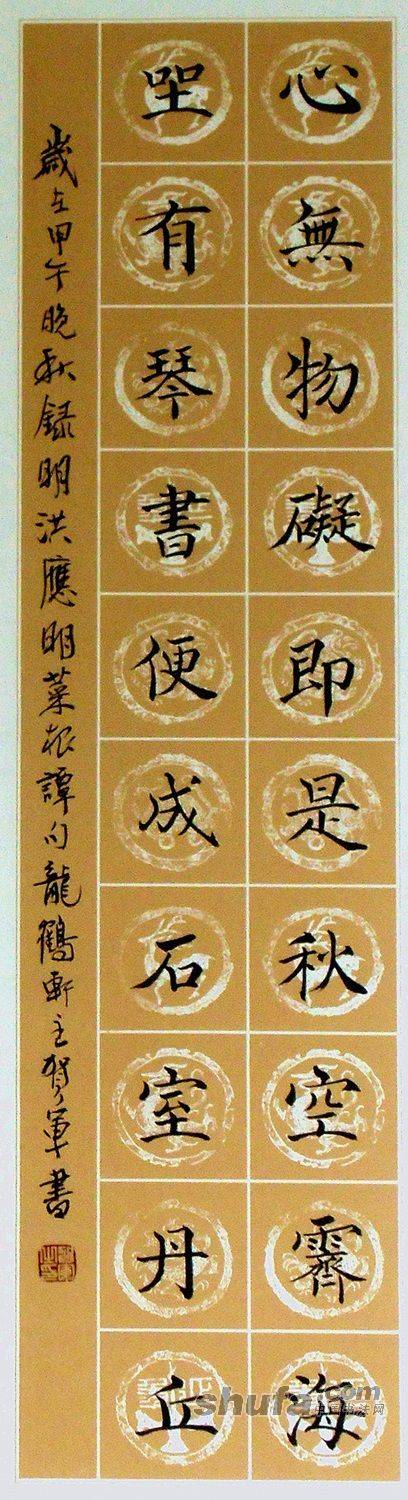 心無物礙即是秋空霽海
坐有琴書便成石室丹丘
歲在甲午晚秋録明洪應明菜根譚句龍鶴軒主賀軍書
shufa.com
中国书法网